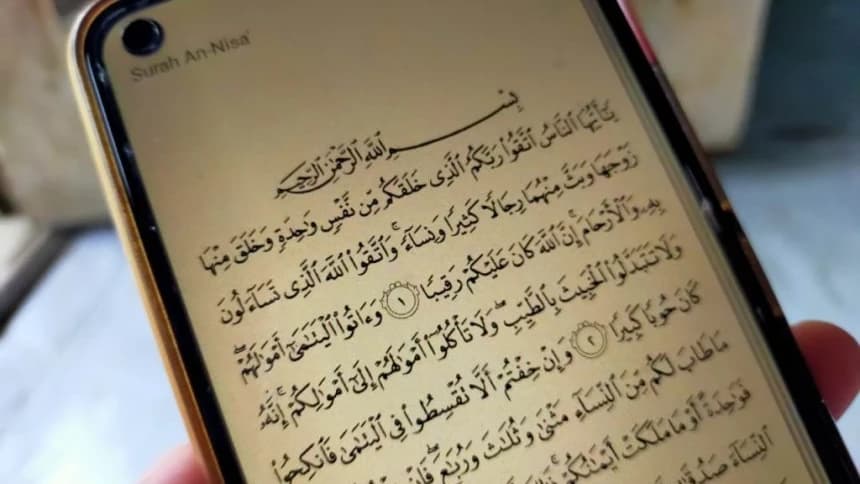 Surah An-Nisa'
بِسْمِ اللَّهِ الرَّحْمَٰنِ الرَّحِيمِ
يَٰٓأَيُّهَا ٱلنَّاسُ ٱتَّقُوا۟ رَبَّكُمُ ٱلَّذِى خَلَقَكُم مِّن نَّفْسٍ وَٰحِدَةٍ وَخَلَقَ مِنْهَا
زَوْجَهَا وَبَثَّ مِنْهُمَا رِجَالًا كَثِيرًا وَنِسَآءً ۚ وَٱتَّقُوا۟ ٱللَّهَ ٱلَّذِى تَسَآءَلُونَ
بِهِۦ وَٱلْأَرْحَامَ ۚ إِنَّ ٱللَّهَ كَانَ عَلَيْكُمْ رَقِيبًا ١ وَءَاتُوا۟ ٱلْيَتَٰمَىٰٓ أَمْوَٰلَهُمْ ۖ
وَلَا تَتَبَدَّلُوا۟ ٱلْخَبِيثَ بِٱلطَّيِّبِ ۖ وَلَا تَأْكُلُوٓا۟ أَمْوَٰلَهُمْ إِلَىٰٓ أَمْوَٰلِكُمْ ۚ إِنَّهُۥ
كَانَ حُوبًا كَبِيرًا ٢ وَإِنْ خِفْتُمْ أَلَّا تُقْسِطُوا۟ فِى ٱلْيَتَٰمَىٰ فَٱنكِحُوا۟
مَا طَابَ لَكُم مِّنَ ٱلنِّسَآءِ مَثْنَىٰ وَثُلَٰثَ وَرُبَٰعَ ۖ فَإِنْ
فَوَٰحِدَةً أَوْ مَا مَلَكَتْ أَيْمَٰنُكُمْ ۚ
ٱلنِّسَآءَ